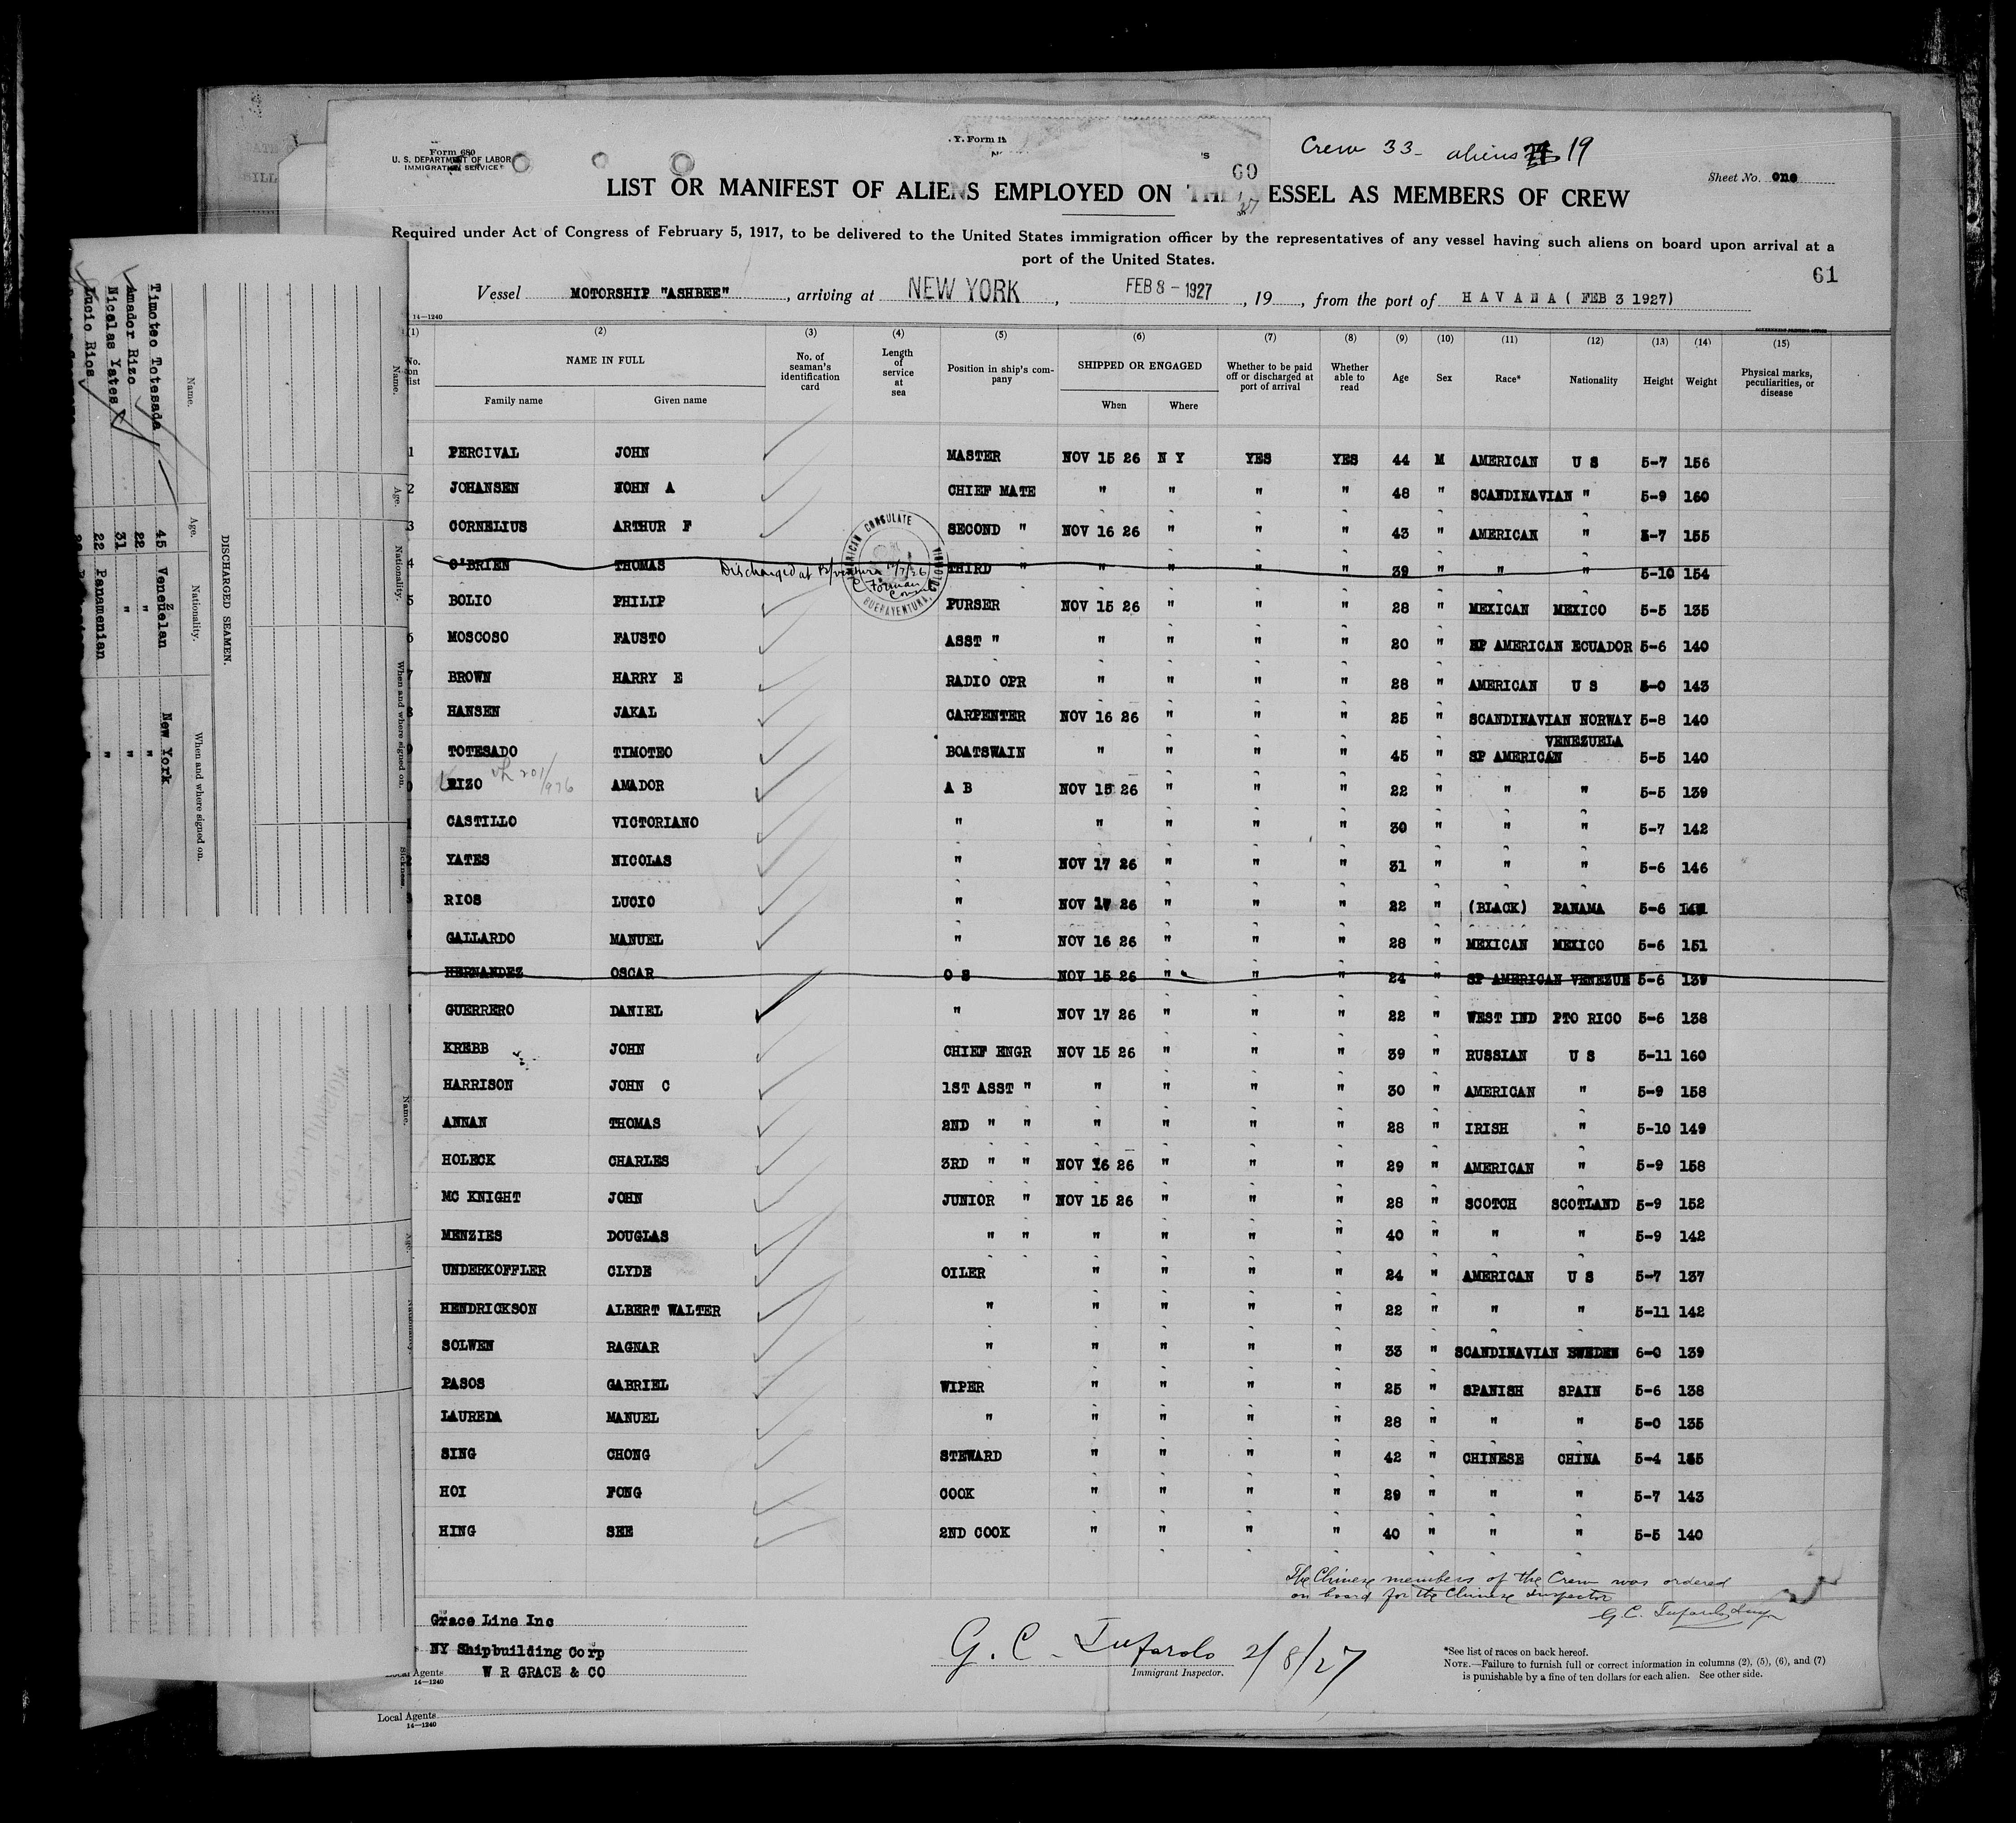 Form 680
U. S. DEPARTMENT OF LABOR
IMMIGRATION SERVICE
Y. Form
Crew 33 - aliens 19
60
Sheet No. one
LIST OR MANIFEST OF ALIENS EMPLOYED ON THE VESSEL AS MEMBERS OF CREW
Required under Act of Congress of February 5, 1917, to be delivered to the United States immigration officer by the representatives of any vessel having such aliens on board upon arrival at a
port of the United States.
61
Vessel MOTORSHIP "ASHBEE", arriving at NEW YORK, FEB 8 - 1927, 19 , from the port of HAVANA ( FEB 3 1927)
14—1240
(1) (2) (3) (4) (5) (6) (7) (8) (9) (10) (11) (12) (13) (14) (15)
No. on list NAME IN FULL Family name Given name No. of seaman's identification card Length of service at sea Position in ship's company SHIPPED OR ENGAGED When Where Whether to be paid off or discharged at port of arrival Whether able to read Age Sex Race* Nationality Height Weight Physical marks, peculiarities, or disease
1 PERCIVAL JOHN MASTER NOV 15 26 N Y YES YES 44 M AMERICAN U S 5-7 156
2 JOHANSEN JOHN A CHIEF MATE " " " " 48 " SCANDINAVIAN " 5-9 160
3 CORNELIUS ARTHUR F SECOND " NOV 16 26 " " " 43 " AMERICAN " 5-7 155
4 O'BRIEN THOMAS Discharged at B/ventura THIRD " " " " " 39 " " " 5-10 154
AMERICAN CONSULATE
BUENAVENTURA, COLOMBIA
5 BOLIO PHILIP PURSER NOV 15 26 " " " 28 " MEXICAN MEXICO 5-5 135
6 MOSCOSO FAUSTO ASST " " " " " 20 " SP AMERICAN ECUADOR 5-6 140
7 BROWN HARRY E RADIO OPR " " " " 28 " AMERICAN U S 5-0 143
8 HANSEN JAKAL CARPENTER NOV 16 26 " " " 25 " SCANDINAVIAN NORWAY 5-8 140
9 TOTESADO TIMOTEO BOATSWAIN " " " " 45 " SP AMERICAN VENEZUELA 5-5 140
0 RIZO AMADOR A B NOV 15 26 " " " 22 " " " 5-5 139
201/976
1 CASTILLO VICTORIANO " " " " " 30 " " " 5-7 142
2 YATES NICOLAS " NOV 17 26 " " " 31 " " " 5-6 146
3 RIOS LUCIO " NOV 17 26 " " " 22 " (BLACK) PANAMA 5-6
GALLARDO MANUEL " NOV 16 26 " " " 28 " MEXICAN MEXICO 5-6 151
HERNANDEZ OSCAR O S NOV 15 26 " " " 24 " SP AMERICAN VENEZUE 5-6 139
GUERRERO DANIEL " NOV 17 26 " " " 22 " WEST IND PTO RICO 5-6 138
KREBB JOHN CHIEF ENGR NOV 15 26 " " " 39 " RUSSIAN U S 5-11 160
HARRISON JOHN C 1ST ASST " " " " " 30 " AMERICAN " 5-9 158
ANNAN THOMAS 2ND " " " " " " 28 " IRISH " 5-10 149
HOLECK CHARLES 3RD " " NOV 16 26 " " " 29 " AMERICAN " 5-9 158
MC KNIGHT JOHN JUNIOR " NOV 15 26 " " " 28 " SCOTCH SCOTLAND 5-9 152
MENZIES DOUGLAS " " " " " " 40 " " " 5-9 142
UNDERKOFFLER CLYDE OILER " " " " 24 " AMERICAN U S 5-7 137
HENDRICKSON ALBERT WALTER " " " " " 22 " " " 5-11 142
SOLWEN RAGNAR " " " " " 33 " SCANDINAVIAN SWEDEN 6-0 139
PASOS GABRIEL WIPER " " " " 25 " SPANISH SPAIN 5-6 138
LAUREDA MANUEL " " " " " 28 " " " 5-0 135
SING CHONG STEWARD " " " " 42 " CHINESE CHINA 5-4 155
HOI FONG COOK " " " " 29 " " " 5-7 143
HING SEE 2ND COOK " " " " 40 " " " 5-5 140
The Chinese members of the Crew was ordered
on board for the Chinese Inspector
G. C. Tufarolo Insp
Grace Line Inc
NY Shipbuilding Corp
W R GRACE & CO
Local Agents
14—1240
G. C. Tufarolo 2/8/27
Immigrant Inspector.
*See list of races on back hereof.
NOTE.—Failure to furnish full or correct information in columns (2), (5), (6), and (7)
is punishable by a fine of ten dollars for each alien. See other side.
Local Agents
14—1240
DISCHARGED SEAMEN.
Name. Age. Nationality. When and where signed on.
Timoteo Totesada 45 Venezuelan New York
Amador Rizo 22 " "
Nicolas Yates 31 " "
Lucio Rios 22 Panamenian "
Name. Age. Nationality. When and where signed on. Sickness.
Name.
Age.
Nationality.